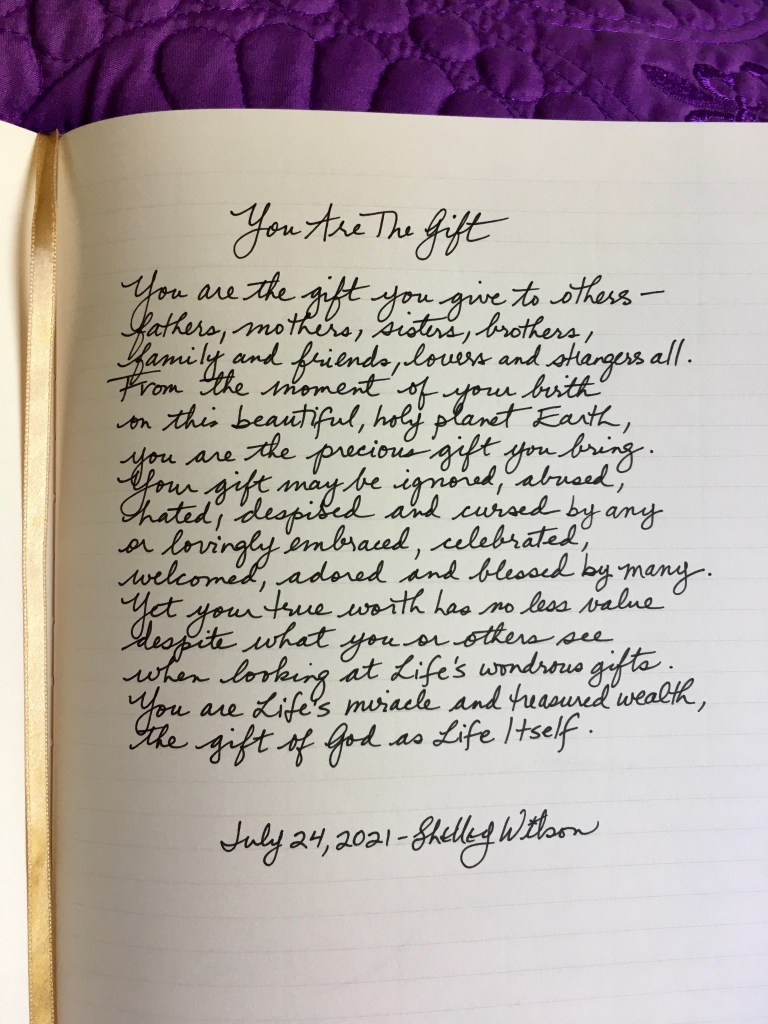 You Are The Gift
You are the gift you give to others –
fathers, mothers, sisters, brothers,
family and friends, lovers and strangers all.
From the moment of your birth
on this beautiful, holy planet Earth,
you are the precious gift you bring.
Your gift may be ignored, abused,
hated, despised and cursed by any
or lovingly embraced, celebrated,
welcomed, adored and blessed by many.
Yet your true worth has no less value
despite what you or others see
when looking at Life's wondrous gifts.
You are Life's miracle and treasured wealth,
the gift of God as Life Itself.
July 24, 2021 - Shelley Wilson